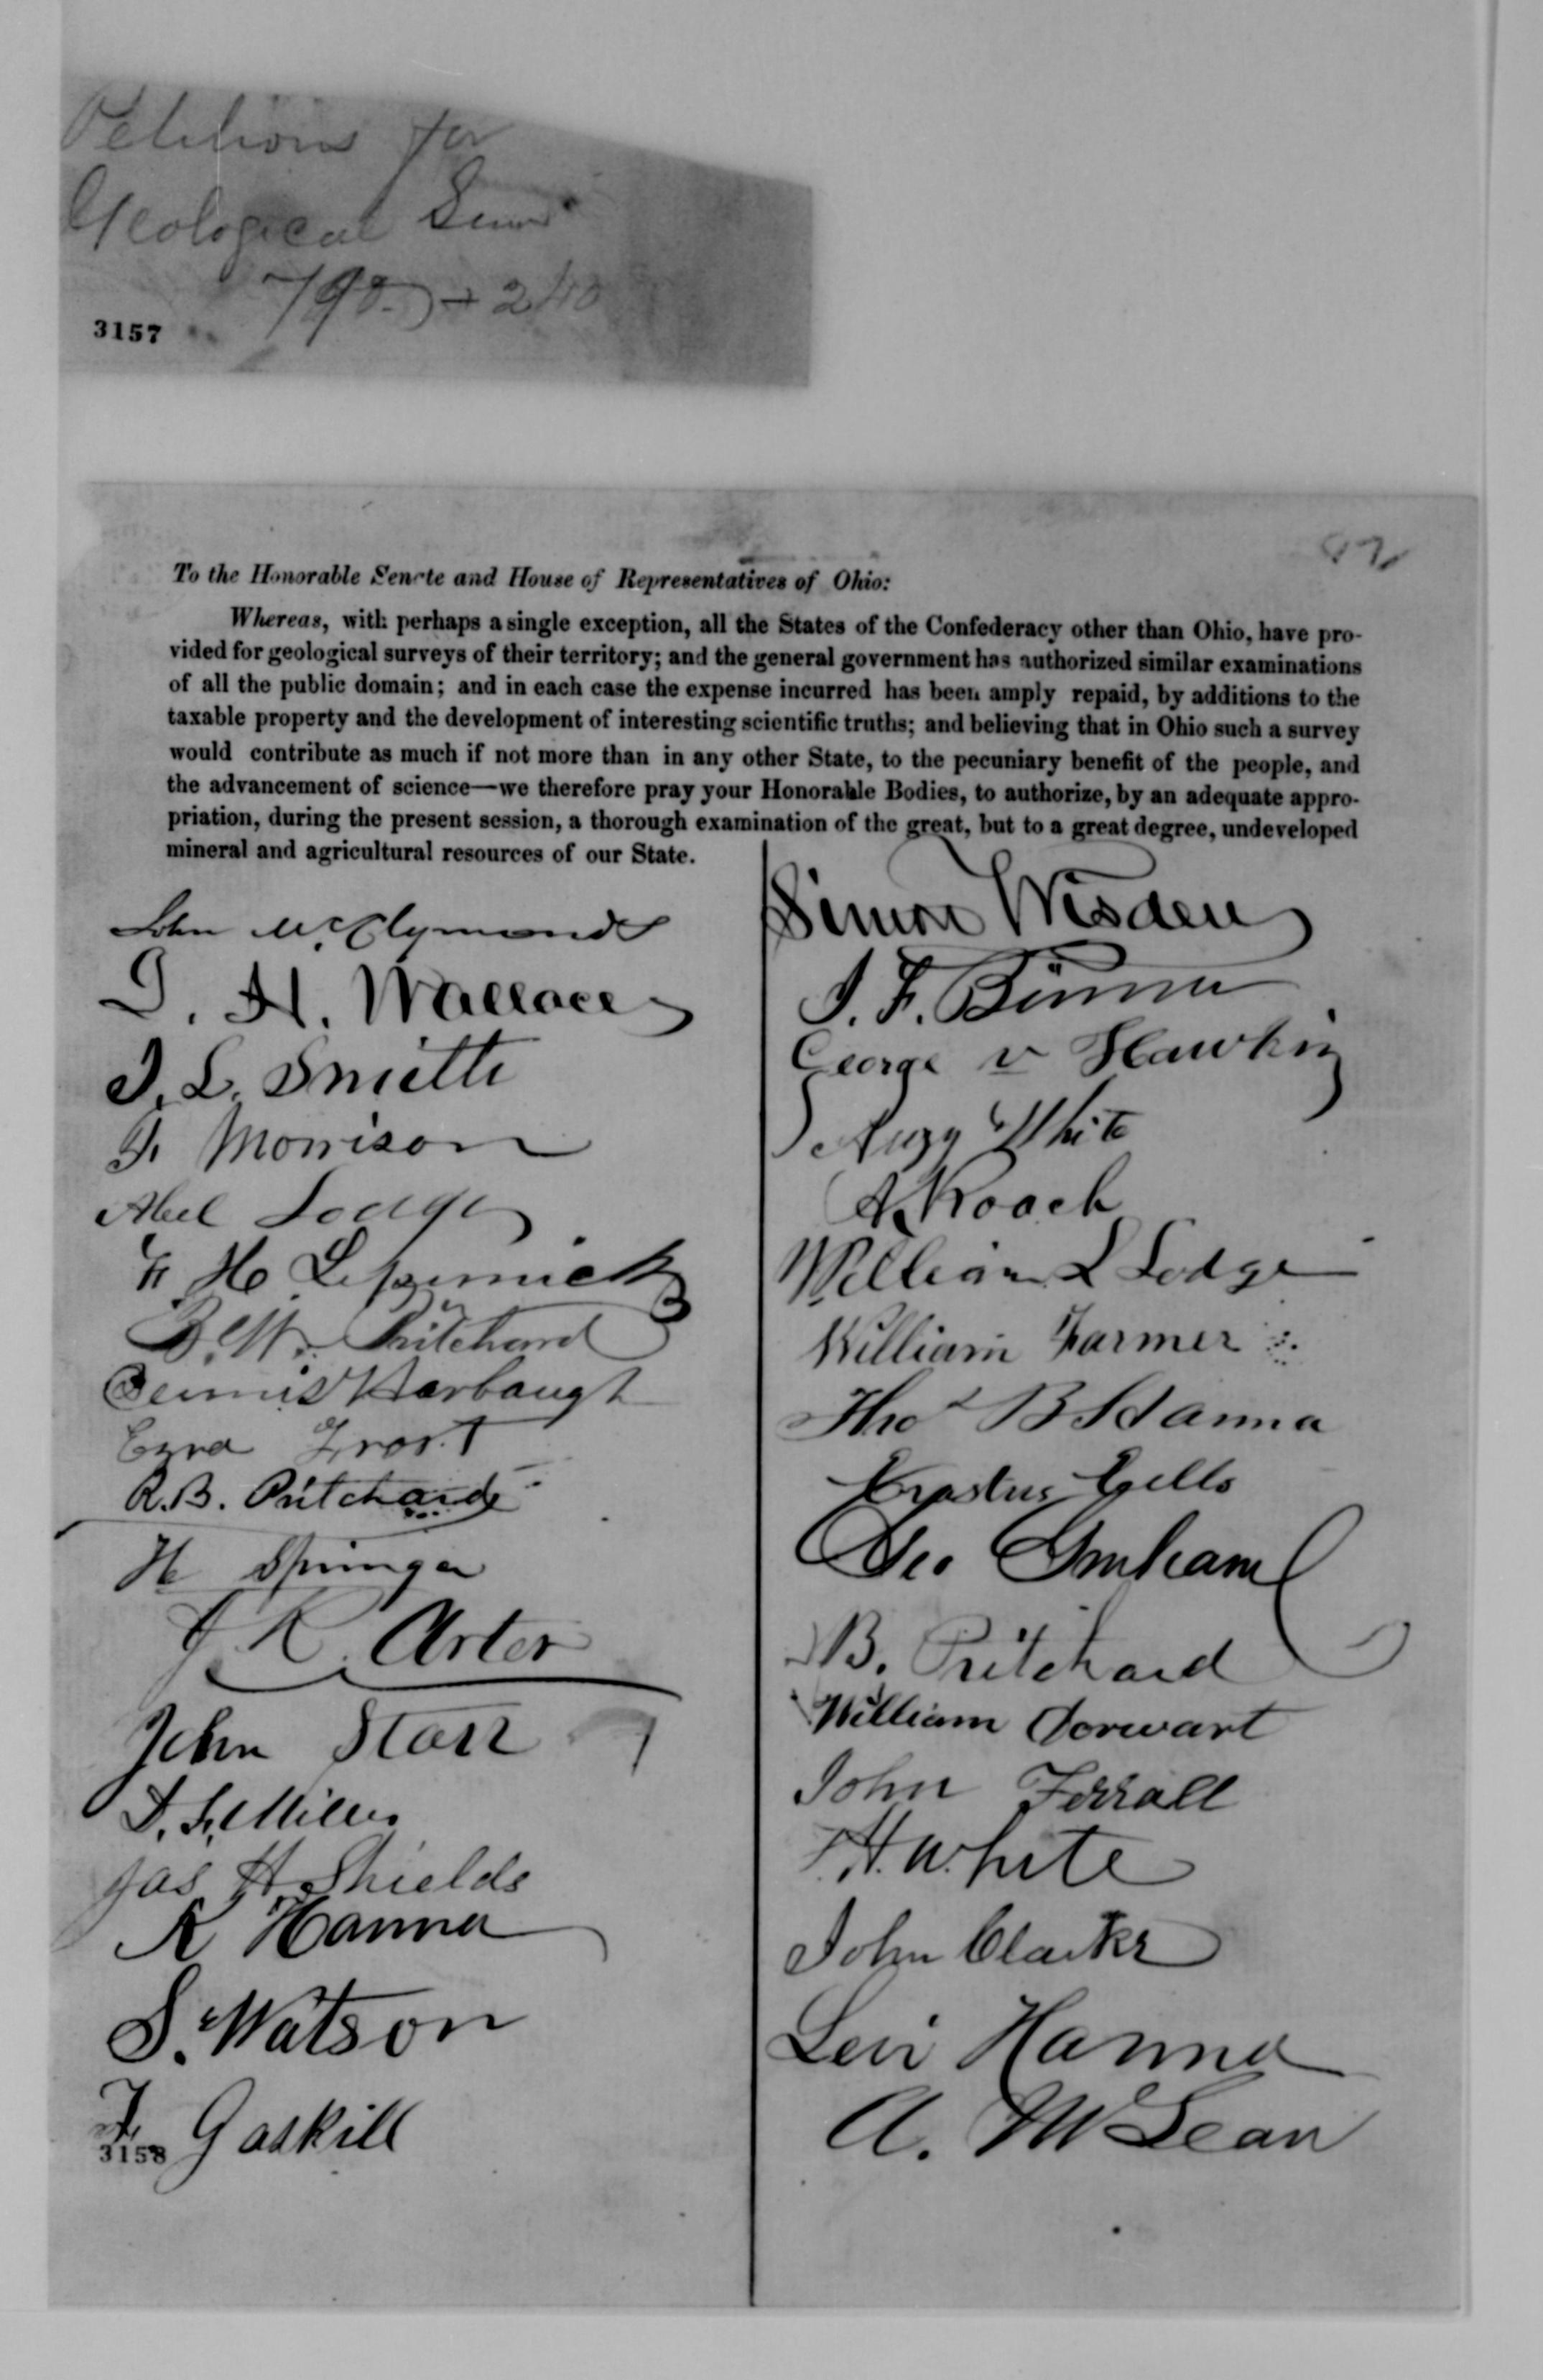 Petitions for
Geological
3157
To the Honorable Senate and House of Representatives of Ohio:
Whereas, with perhaps a single exception, all the States of the Confederacy other than Ohio, have pro-
vided for geological surveys of their territory; and the general government has authorized similar examinations
of all the public domain; and in each case the expense incurred has been amply repaid, by additions to the
taxable property and the development of interesting scientific truths; and believing that in Ohio such a survey
would contribute as much if not more than in any other State, to the pecuniary benefit of the people, and
the advancement of science—we therefore pray your Honorable Bodies, to authorize, by an adequate appro-
priation, during the present session, a thorough examination of the great, but to a great degree, undeveloped
mineral and agricultural resources of our State.
John McClymonds
J. H. Wallace
J. L. Smith
Morrison
Abel Lodge
F. H.
B. W. Pritchard
Dennis Harbaugh
Ezra Frost
R.B. Pritchard
H Springer
J R. Arter
John Starr
Miller
Jas H Shields
K Hanna
S. Watson
Gaskill
3158
Simon Wisden
J. F.
George v Hawkin
White
A. Roach
William L Lodge
William Farmer
Thos B Hanna
Erastus Eells
Geo Graham
B. Pritchard
William Dorwart
John Ferrall
H. White
John Clarke
Levi Hanna
A. McLean